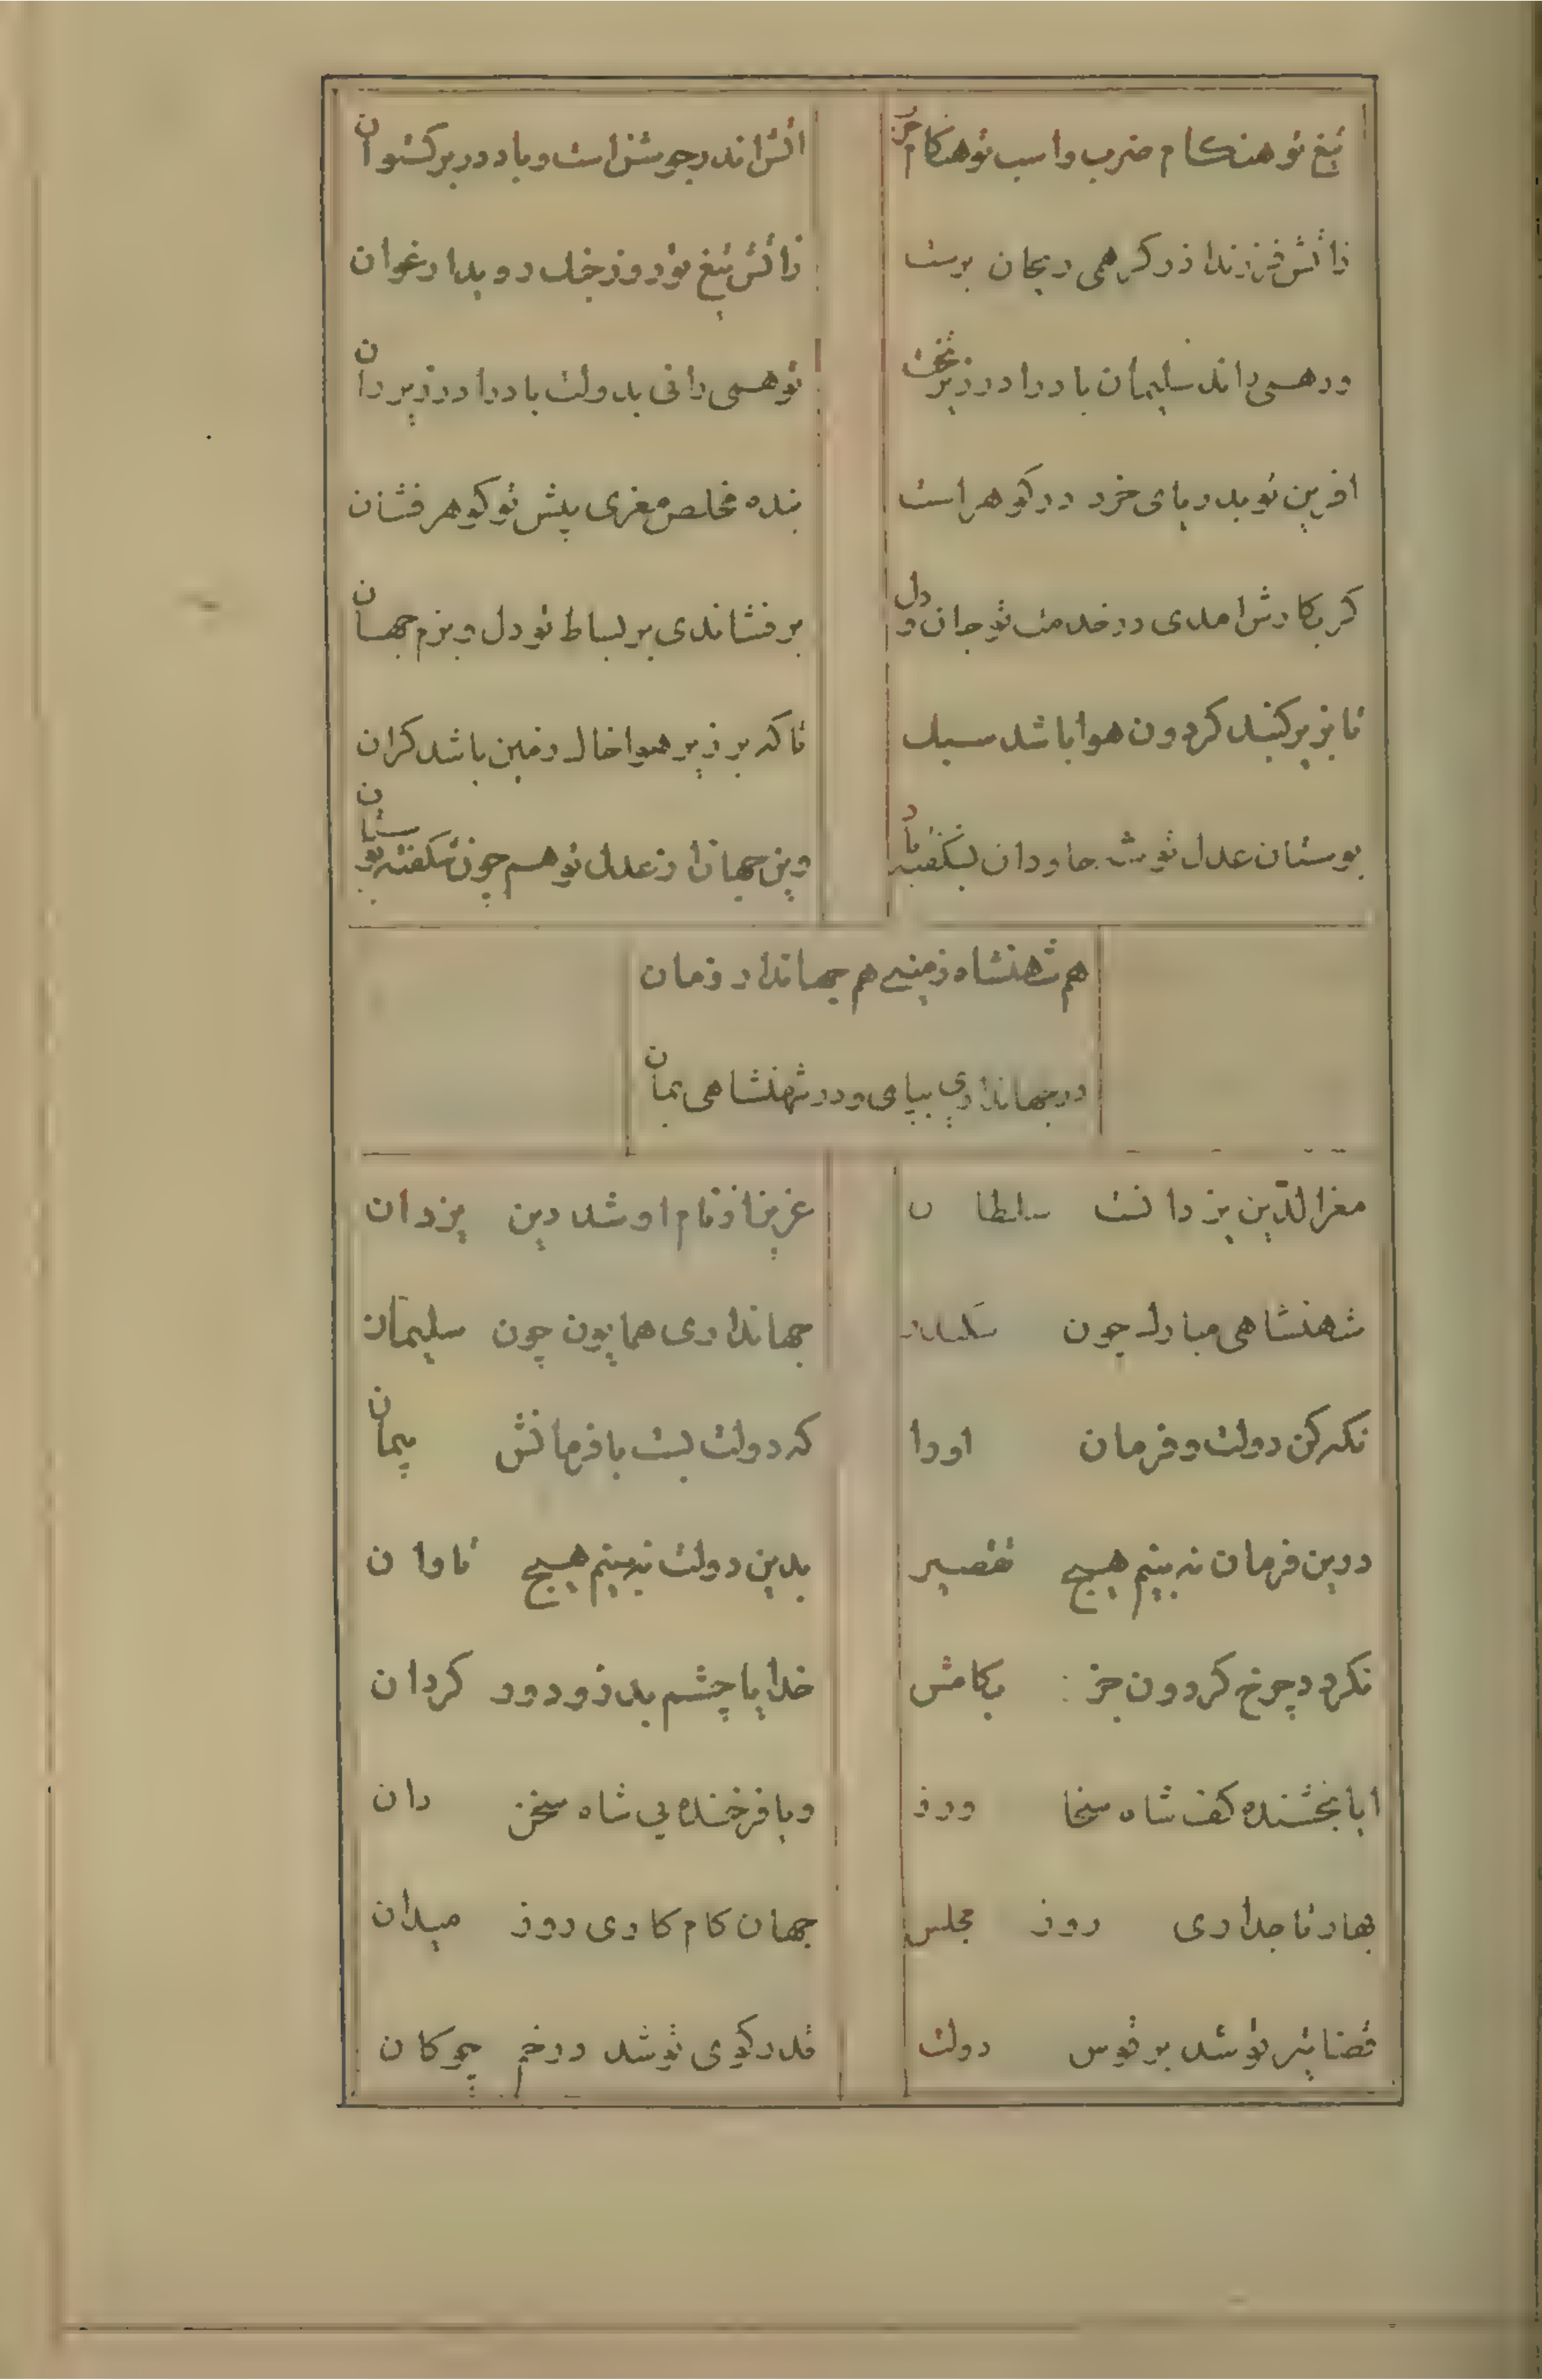 تیغ تو هنکام ضرب و اسب تو هنکام حرب
اتش اندر جوشن است و باد در برکستوان
زاتش فرزند ازر کر همی ریحان برست
زاتش تیغ تو روز جنک روید ارغوان
ور همی راند سلیمان باد را در زیر تخت
تو همی رانی بدولت باد را در زیر ران
افرین تو بدریای خرد در کوهر است
بنده مخلص معزی پیش تو کوهر فشان
کر بکارش امدی در خدمت تو جان و دل
برفشاندی بر بساط تو دل و بزم جهان
تا بزیر کنبد کردون هوا باشد سبک
تا که بر زیر هوا خاک زمین باشد کران
بوستان عدل تو جاودان بشکفته باد
وین جهان از عدل تو هم چون شکفته بوستان
هم شهنشاه زمینی هم جهاندار زمان
در جهانداری بپای و در شهنشاهی بمان
معزالدین یزدانست سلطان
عزیز از نام او شد دین یزدان
شهنشاهی مبارک چون سکندر
جهانداری همایون چون سلیمان
نکه کن دولت و فرمان اورا
که دولت بست با فرمانش پیمان
درین فرمان نه بینم هیچ تقصیر
بدین دولت نه بینم هیچ تاوان
نکردد چرخ کردون جز بکامش
خدایا چشم بد زو دور کردان
ایا بخشنده کف شاه سخا ورز
و یا فرخنده پی شاه سخن دان
بهار تاجداری روز مجلس
جهان کام کاری روز میدان
قضا تیر تو شد بر قوس دولت
قدر کوی تو شد در خم چوکان